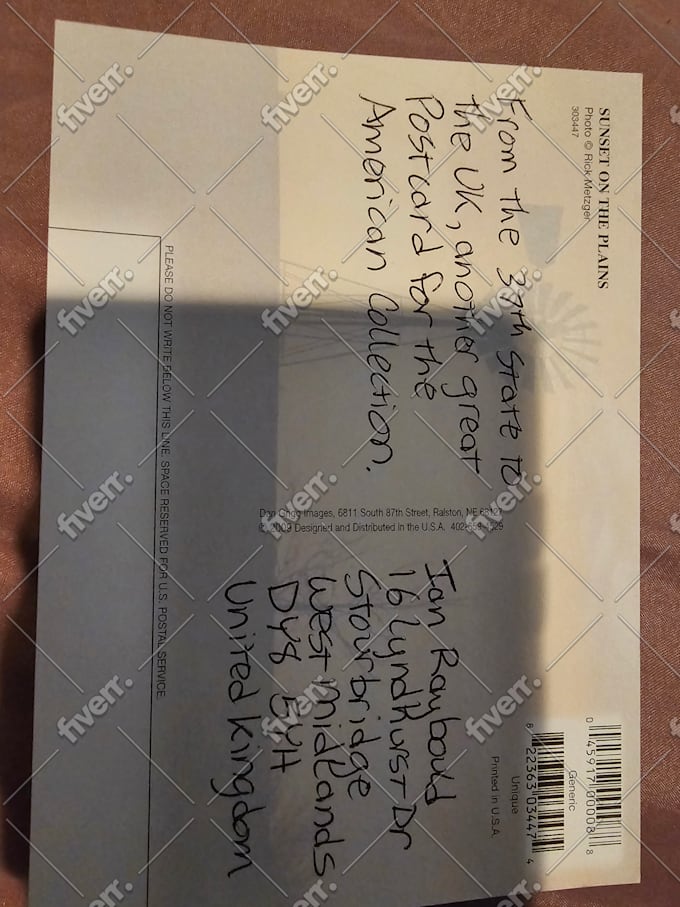 SUNSET ON THE PLAINS
Photo © Rick Metzger
303447
From the 37th State to
the UK, another great
Postcard for the
American Collection.
Dan Grigg Images, 6811 South 87th Street, Ralston, NE 68127
© 2009 Designed and Distributed in the U.S.A. 402-659-4029
Ian Raybould
16 Lyndhurst Dr
Stourbridge
West Midlands
DY8 5YH
United Kingdom
0 45917 00008 8
Generic
8 22363 03447 4
Unique
Printed in U.S.A.
PLEASE DO NOT WRITE BELOW THIS LINE. SPACE RESERVED FOR U.S. POSTAL SERVICE.
fiverr.